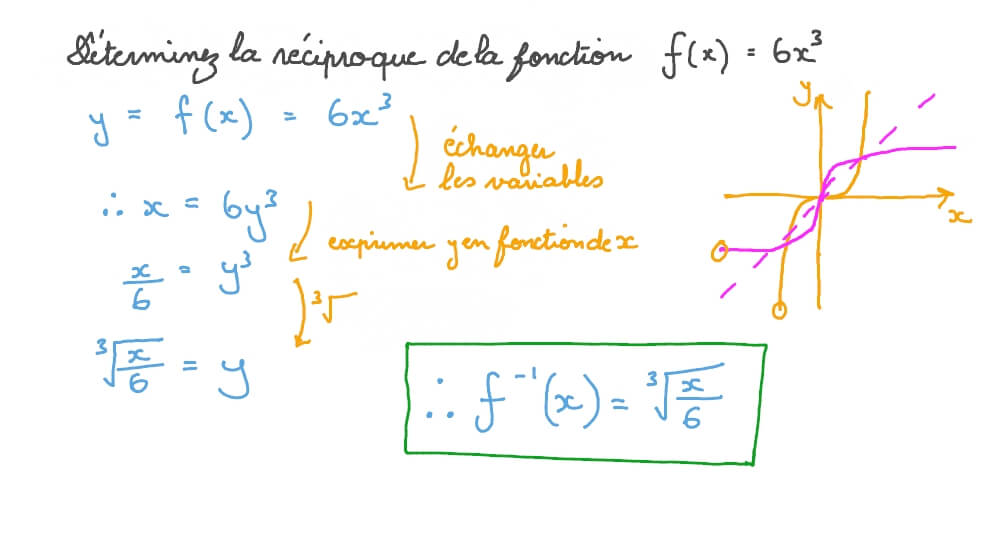 Déterminez la réciproque de la fonction f(x) = 6x³
y = f(x) = 6x³
échanger
les variables
∴ x = 6y³
exprimer y en fonction de x
x/6 = y³
³√
³√(x/6) = y
∴ f⁻¹(x) = ³√(x/6)
y
x